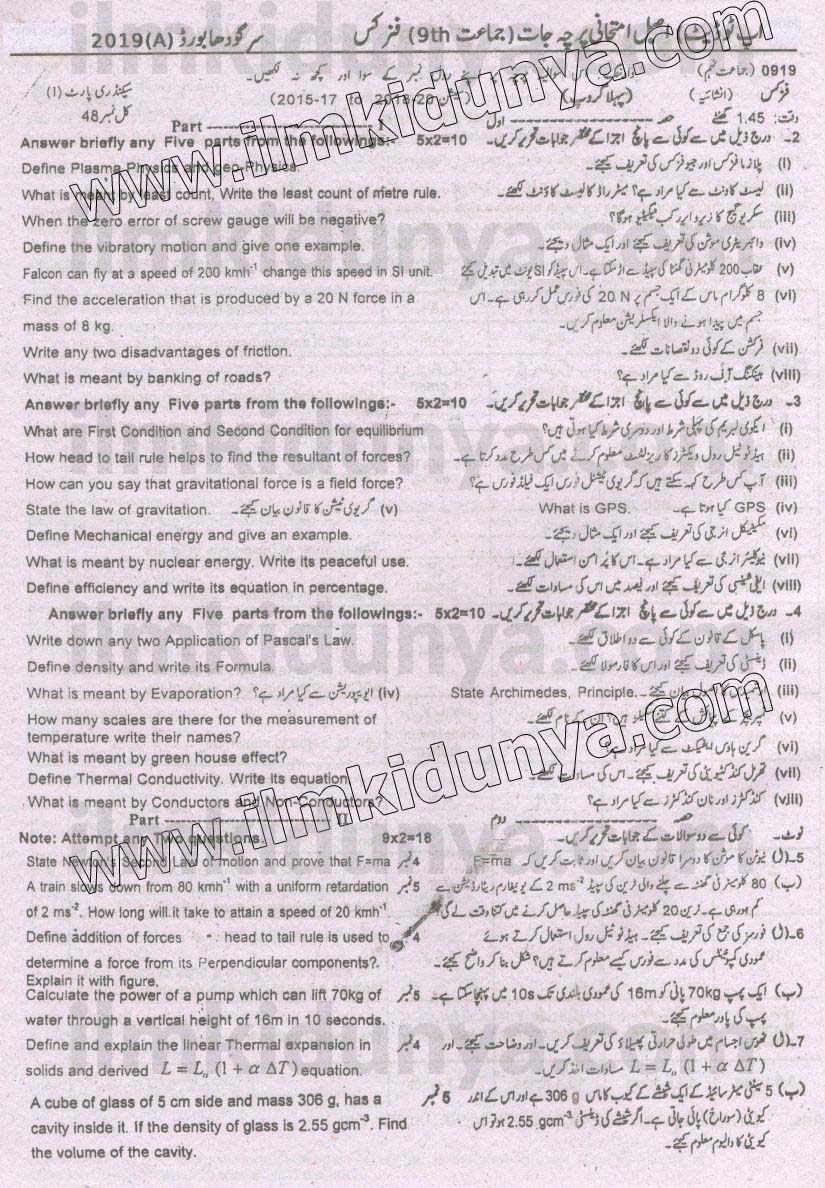 سرگودھا بورڈ 2019(A) فزکس (9th جماعت) اصل امتحانی پرچہ جات
0919 (جماعت نہم)
سیکنڈری پارٹ (I)
فزکس (انشائیہ) (پہلا گروپ) (2015-17 To 2018-20)
کل نمبر 48
وقت: 1.45 گھنٹے حصہ اول
Part I
Answer briefly any Five parts from the followings:- 5x2=10 2- درج ذیل میں سے کوئی سے پانچ اجزا کے مختصر جوابات تحریر کریں۔
Define Plasma Physics and geo-Physics. (i) پلازما فزکس اور جیو فزکس کی تعریف کیجئے۔
What is meant by least count, Write the least count of metre rule. (ii) لیسٹ کاونٹ سے کیا مراد ہے؟ میٹر راڈ کا لیسٹ کاؤنٹ لکھئے۔
When the zero error of screw gauge will be negative? (iii) سکریو گیج کا زیرو ایرر کب نیگیٹو ہوگا؟
Define the vibratory motion and give one example. (iv) وائبریٹری موشن کی تعریف کیجئے اور ایک مثال دیجئے۔
Falcon can fly at a speed of 200 kmh⁻¹ change this speed in SI unit. (v) عقاب 200 کلومیٹر فی گھنٹا کی سپیڈ سے اڑ سکتا ہے۔ اس سپیڈ کو SI یونٹ میں تبدیل کیجئے
Find the acceleration that is produced by a 20 N force in a (vi) 8 کلوگرام ماس کے ایک جسم پر 20 N کی فورس عمل کر رہی ہے۔ اس
mass of 8 kg. جسم میں پیدا ہونے والا ایکسلریشن معلوم کریں۔
Write any two disadvantages of friction. (vii) فرکشن کے کوئی دو نقصانات لکھئے۔
What is meant by banking of roads? (viii) بینکنگ آف روڈ سے کیا مراد ہے؟
Answer briefly any Five parts from the followings:- 5x2=10 3- درج ذیل میں سے کوئی سے پانچ اجزا کے مختصر جوابات تحریر کریں۔
What are First Condition and Second Condition for equilibrium (i) ایکوی لبریم کی پہلی شرط اور دوسری شرط کیا ہوتی ہیں؟
How head to tail rule helps to find the resultant of forces? (ii) ہیڈ ٹو ٹیل رول ویکٹرز کا ریزلٹنٹ معلوم کرنے میں کس طرح مدد کرتا ہے۔
How can you say that gravitational force is a field force? (iii) آپ کس طرح کہہ سکتے ہیں کہ گریوی ٹیشنل فورس ایک فیلڈ فورس ہے؟
State the law of gravitation. (v) گریوی ٹیشن کا قانون بیان کیجئے۔ What is GPS. (iv) GPS کیا ہوتا ہے۔
Define Mechanical energy and give an example. (vi) مکینیکل انرجی کی تعریف کیجئے اور ایک مثال دیجئے۔
What is meant by nuclear energy. Write its peaceful use. (vii) نیوکلیئر انرجی سے کیا مراد ہے۔ اس کا پر امن استعمال لکھئے۔
Define efficiency and write its equation in percentage. (viii) ایفی شینسی کی تعریف کیجئے اور فیصد میں اس کی مساوات لکھئے۔
Answer briefly any Five parts from the followings:- 5x2=10 4- درج ذیل میں سے کوئی سے پانچ اجزا کے مختصر جوابات تحریر کریں۔
Write down any two Application of Pascal's Law. (i) پاسکل کے قانون کے کوئی سے دو اطلاق لکھئے۔
Define density and write its Formula. (ii) ڈینسٹی کی تعریف کیجئے اور اس کا فارمولا لکھئے۔
What is meant by Evaporation? (iv) ایوپوریشن سے کیا مراد ہے؟ State Archimedes, Principle. (iii) بیان کیجئے۔
How many scales are there for the measurement of (v) ٹمپریچر کی پیمائش کے کتنے سکیلز ہیں؟ ان کے نام لکھئے۔
temperature write their names?
What is meant by green house effect? (vi) گرین ہاؤس ایفیکٹ سے کیا مراد ہے؟
Define Thermal Conductivity. Write its equation (vii) تھرمل کنڈکٹیویٹی کی تعریف کیجئے۔ اس کی مساوات لکھئے۔
What is meant by Conductors and Non-Conductors? (viii) کنڈکٹرز اور نان کنڈکٹرز سے کیا مراد ہے؟
Part II حصہ دوم
Note: Attempt any Two questions. 9x2=18 نوٹ۔ کوئی سے دو سوالات کے جوابات تحریر کریں۔
State Newton's Second Law of motion and prove that F=ma 4 نمبر 5۔(ا) نیوٹن کا موشن کا دوسرا قانون بیان کریں اور ثابت کریں کہ F=ma
A train slows down from 80 kmh⁻¹ with a uniform retardation 5 نمبر (ب) 80 کلومیٹر فی گھنٹہ سے چلنے والی ٹرین کی سپیڈ 2 ms⁻² کے یونیفارم ریٹارڈیشن سے
of 2 ms⁻². How long will it take to attain a speed of 20 kmh⁻¹. کم ہو رہی ہے۔ ٹرین 20 کلومیٹر فی گھنٹہ کی سپیڈ حاصل کرنے میں کتنا وقت لے گی؟
Define addition of forces head to tail rule is used to 4 6۔(ا) فورسز کی جمع کی تعریف کیجئے۔ ہیڈ ٹو ٹیل رول استعمال کرتے ہوئے
determine a force from its Perpendicular components?. عمودی کمپونینٹس کی مدد سے فورس کیسے معلوم کرتے ہیں؟ شکل بنا کر واضح کیجئے۔
Explain it with figure.
Calculate the power of a pump which can lift 70kg of 5 نمبر (ب) ایک پمپ 70kg پانی کو 16m کی عمودی بلندی تک 10s میں پہنچا سکتا ہے۔
water through a vertical height of 16m in 10 seconds. پمپ کی پاور معلوم کیجئے۔
Define and explain the linear Thermal expansion in 4 نمبر 7۔(ا) ٹھوس اجسام میں طولی حرارتی پھیلاؤ کی تعریف کریں۔ اور وضاحت کیجئے۔ اور
solids and derived L = L₀ (1 + α ΔT) equation. L = L₀ (1 + α ΔT) مساوات اخذ کریں۔
A cube of glass of 5 cm side and mass 306 g, has a 5 نمبر (ب) 5 سینٹی میٹر سائیڈ کے ایک شیشے کے کیوب کا ماس 306 g ہے اور اس کے اندر
cavity inside it. If the density of glass is 2.55 gcm⁻³. Find کیویٹی (سوراخ) پائی جاتی ہے۔ اگر شیشے کی ڈینسٹی 2.55 gcm⁻³ ہو تو اس
the volume of the cavity. کیویٹی کا والیوم معلوم کیجئے۔
www.ilmkidunya.com
www.ilmkidunya.com
ilmkidunya.com